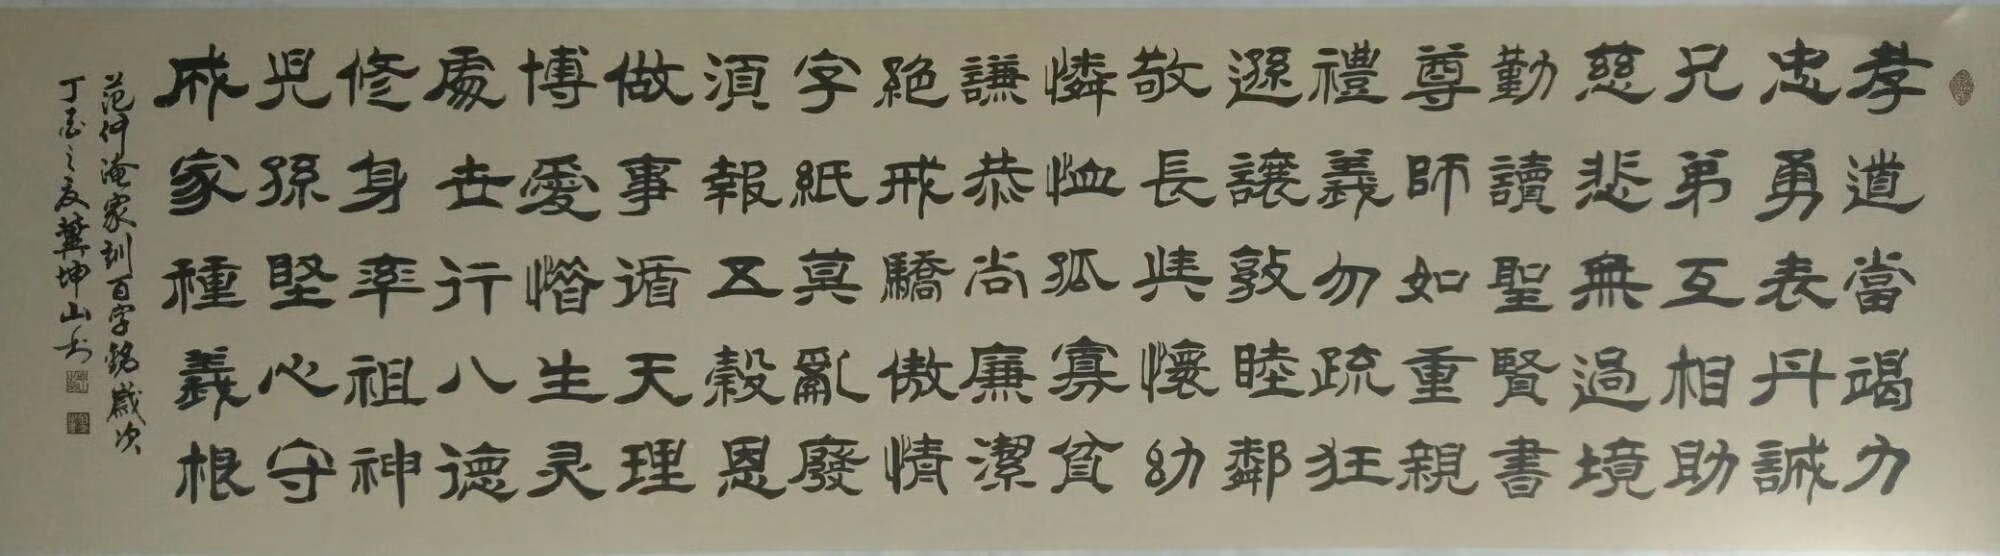 孝道當竭力
忠勇表丹誠
兄弟互相助
慈悲無過境
勤讀聖賢書
尊師如重親
禮義勿疏狂
遜讓敦睦鄰
敬長與懷幼
憐恤孤寡貧
謙恭尚廉潔
絶戒驕傲情
字紙莫亂廢
須報五穀恩
做事遁天理
博愛惜生灵
處世行八德
修身率祖神
兒孫堅心守
成家種義根
范仲淹家訓百字銘歲次
丁酉之夏龔坤山书